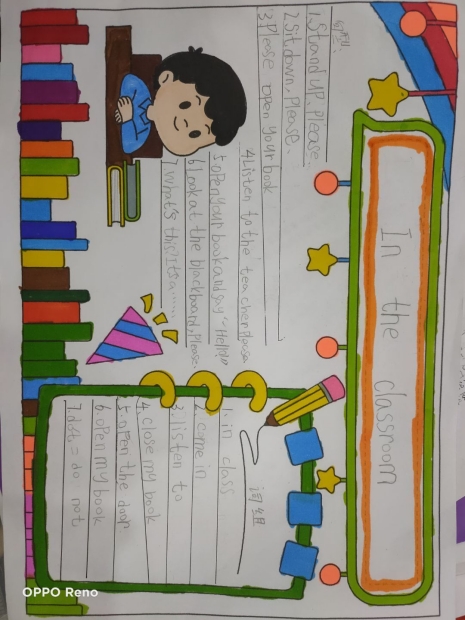 In the classroom
句型:
1.Stand up, Please.
2.Sit down, Please.
3.Please open your book
4.Listen to the teacher please
5.open your book and say "Hello"
6.Look at the blackboard, Please.
7.What's this? It's a......
词组
1. in class
2. come in
3. listen to
4. close my book
5. open the door
6. open my book
7. = do not
OPPO Reno